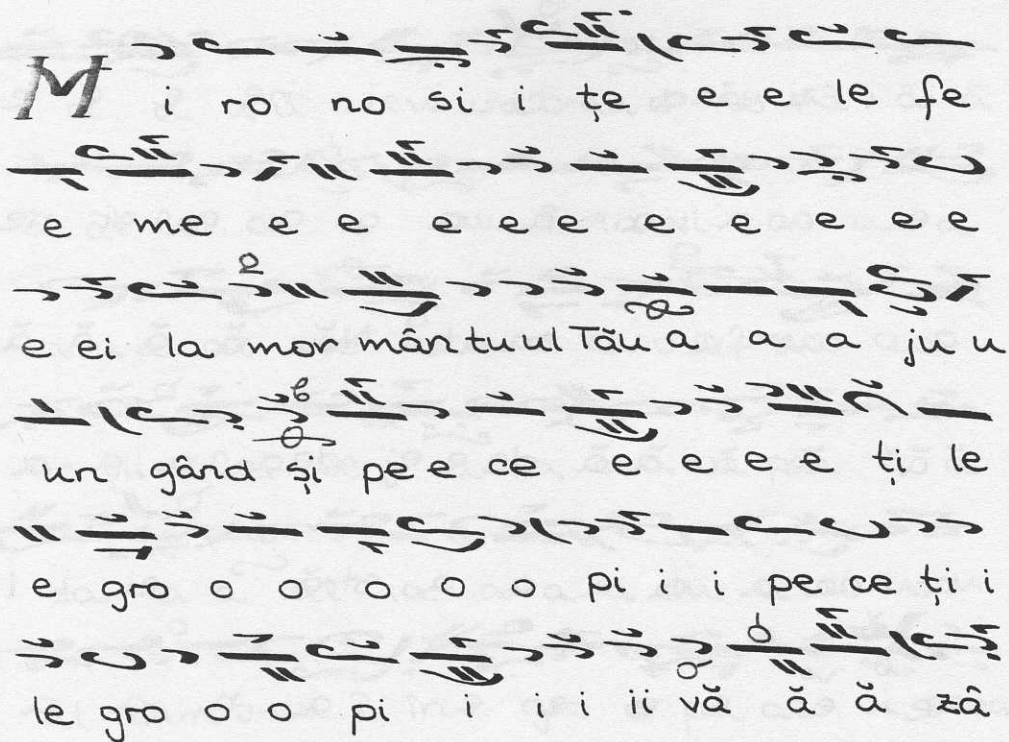 M i ro no si i țe e e le fe
e me e e e e e e e e e e
e ei la mormântuul Tău a a a ju u
un gând și pe e ce e e e e ți le
e gro o o o o o pi i i pe ce ți i
le gro o o o pi i i i ii vă ă ă ză